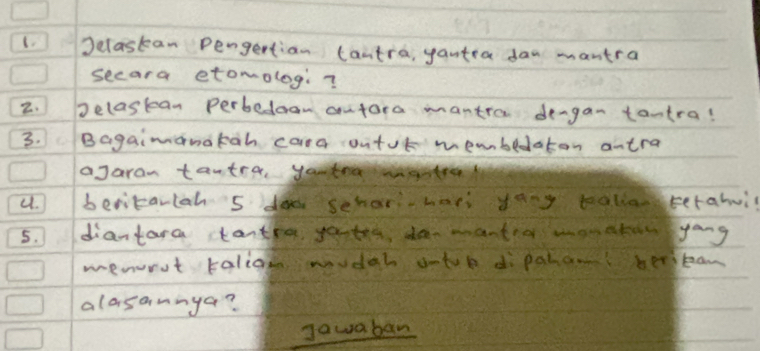 1. Jelaskan Pengertian tantra, yantra dan mantra
secara etomologi ?
2. Jelaskan Perbedaan antara mantra dengan tantra!
3. Bagaimanakah cara untuk membedakan antra
ajaran tantra, yantra mantra!
4. berikanlah 5 doa sehari-hari yang kalian ketahui!
5. diantara tantra, yantra, dan mantra manakah yang
menurut kalian mudah untuk di pahami berikan
alasannya?
Jawaban